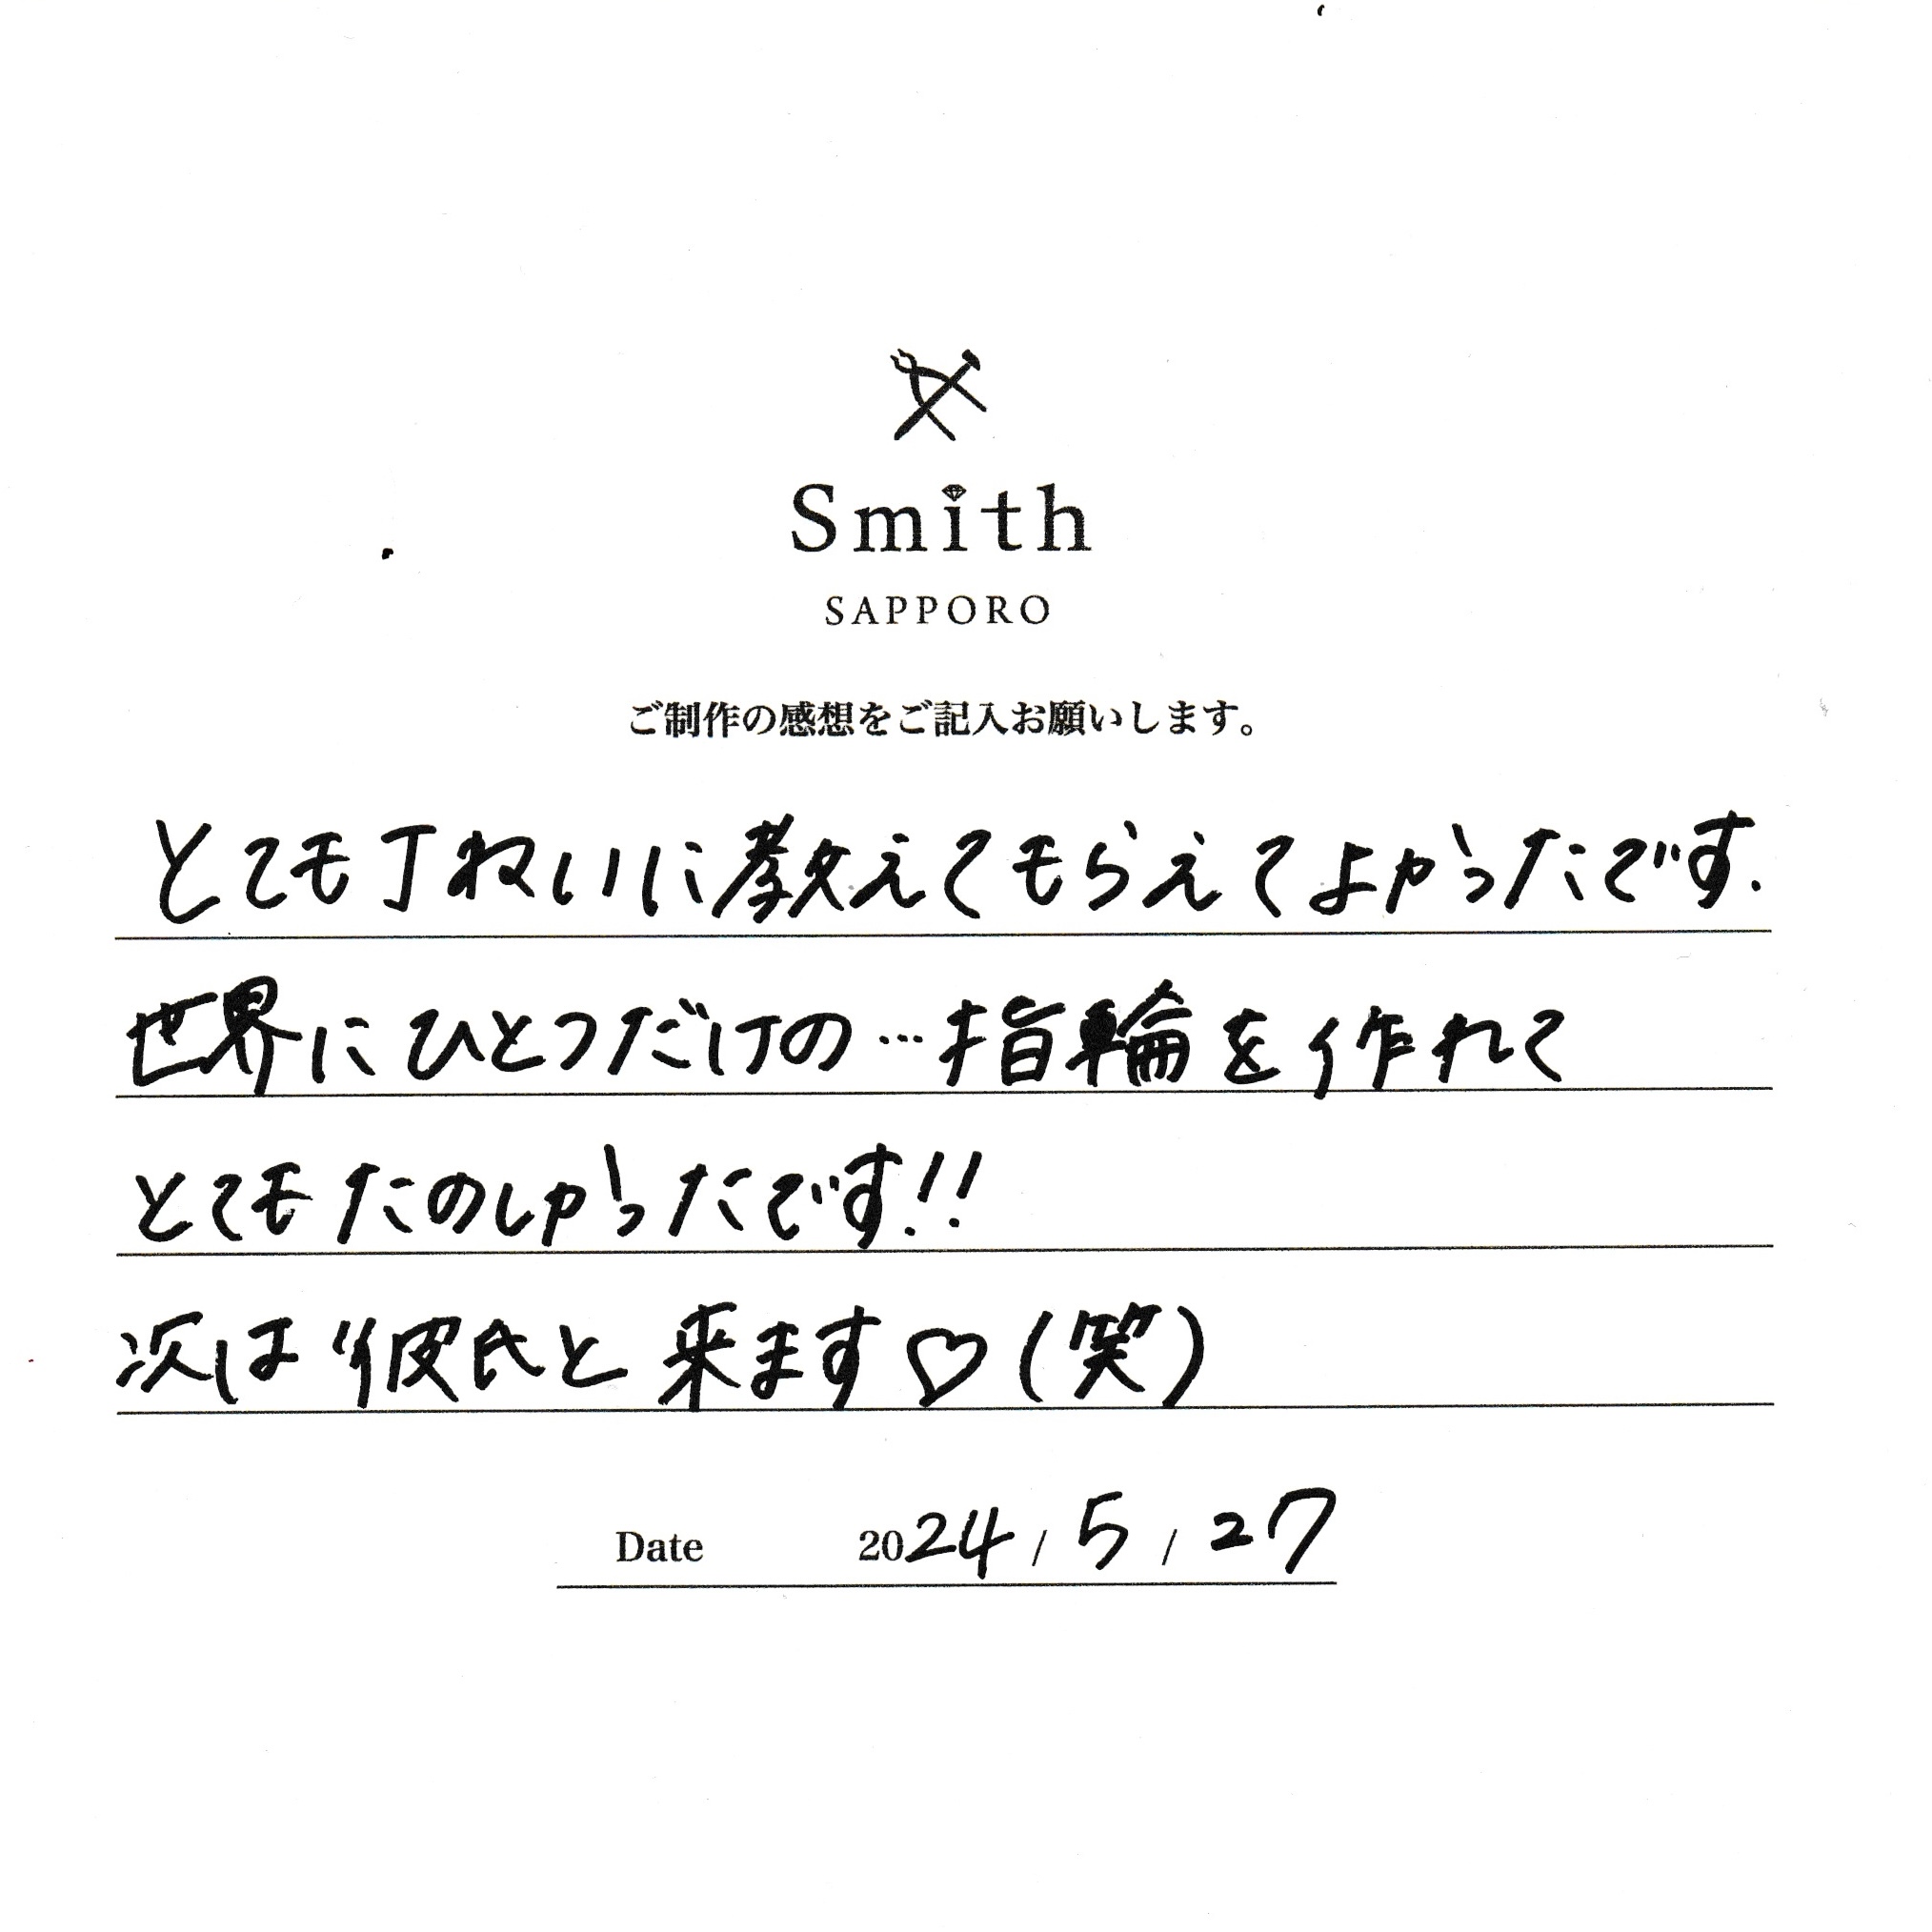 Smith
SAPPORO
ご制作の感想をご記入お願いします。
とても丁ねいに教えてもらえてよかったです.
世界にひとつだけの…指輪を作れて
とてもたのしかったです!!
次は"彼氏と来ます♡(笑)
Date 2024/5/27